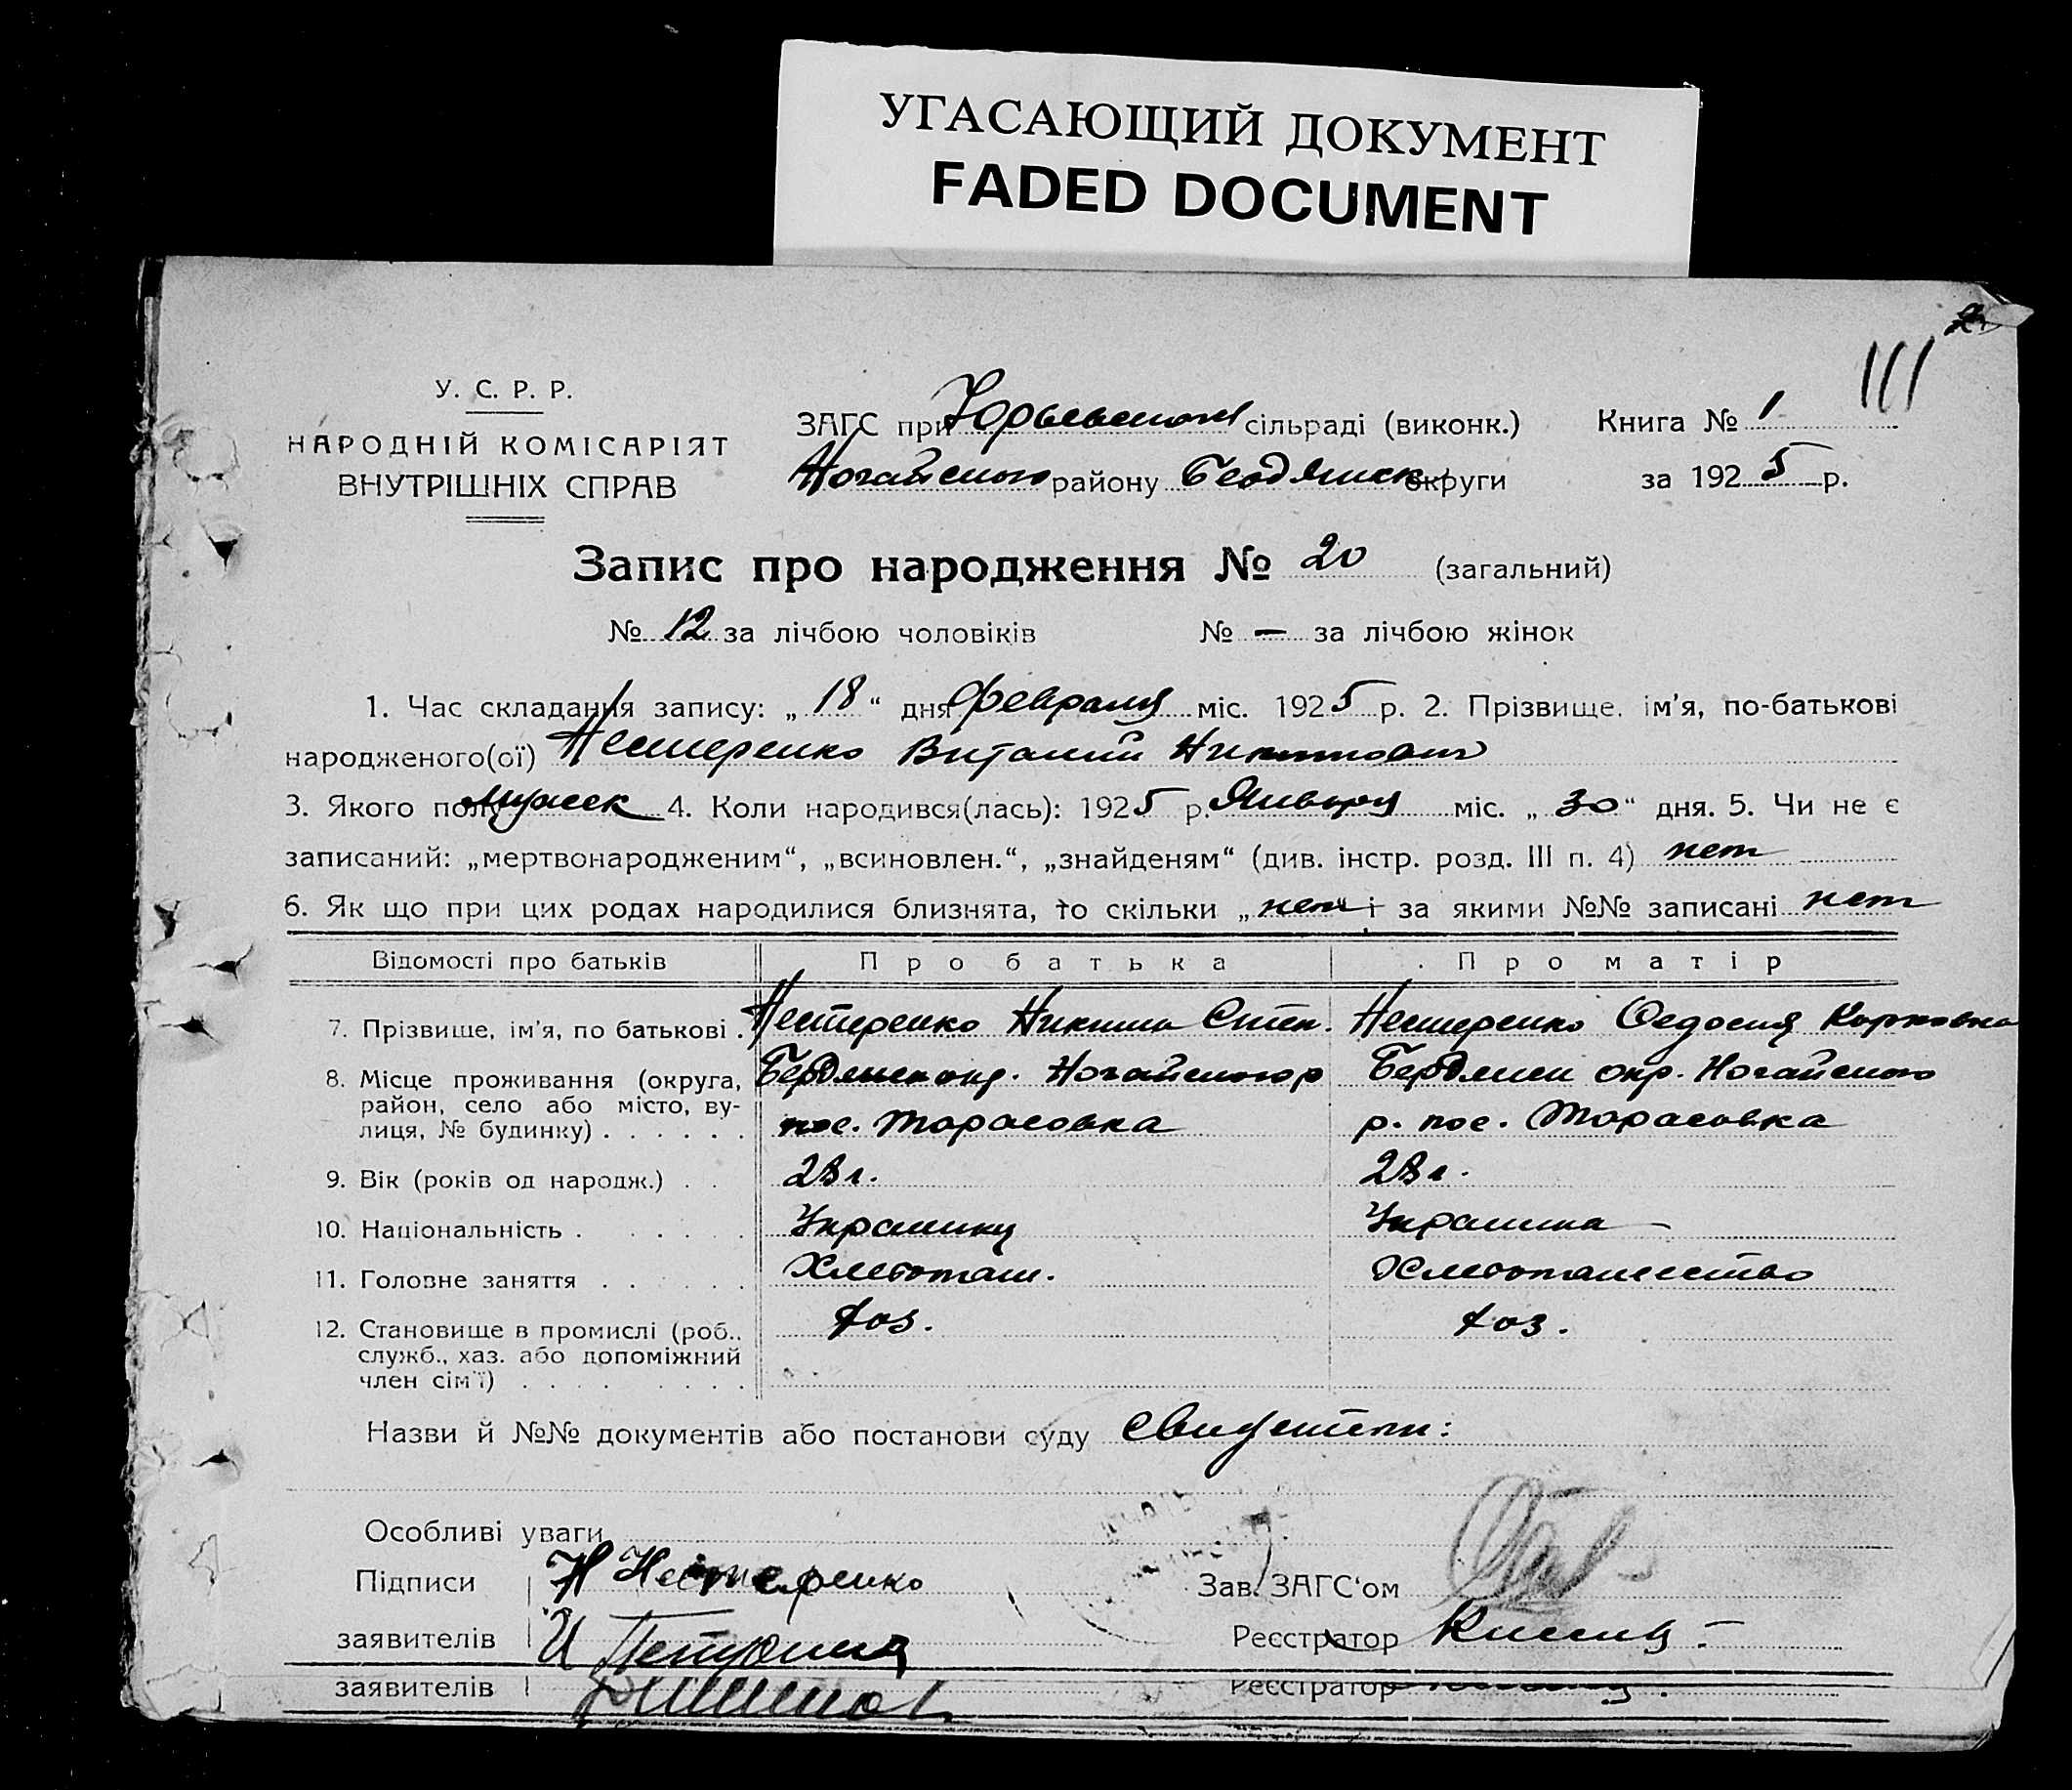 УГАСАЮЩИЙ ДОКУМЕНТ
FADED DOCUMENT
111
У. С. Р. Р.
НАРОДНІЙ КОМІСАРІЯТ
ВНУТРІШНІХ СПРАВ
ЗАГС при Юрьевском сільраді (виконк.) Книга № 1
Ногайского району Бердянск округи за 1925 р.
Запис про народження № 20 (загальний)
№ 12 за лічбою чоловіків № — за лічбою жінок
1. Час складання запису: „18“ дня февраля міс. 1925 р. 2. Прізвище, ім'я, по-батькові
народженого(ої) Нестеренко Виталий Никитович
3. Якого полу мужск 4. Коли народився(лась): 1925 р. Января міс. „30“ дня. 5. Чи не є
записаний: „мертвонародженим“, „всиновлен.“, „знайденям“ (див. інстр. розд. III п. 4) нет
6. Як що при цих родах народилися близнята, то скільки „нет“ і за якими №№ записані нет
Відомості про батьків Про батька Про матір
7. Прізвище, ім'я, по батькові . Нестеренко Никита Степ. Нестеренко Федосия Карповна
8. Місце проживання (округа, Бердянск окр. Ногайского р Бердянск окр. Ногайского
район, село або місто, ву-
лиця, № будинку) . . . . . . пос. Тарасовка р. пос. Тарасовка
9. Вік (років од народж.) . . 28 л. 28 л.
10. Національність . . . . . . Украинец Украинка
11. Головне заняття . . . . . Хлебопаш. Хлебопашество
12. Становище в промислі (роб., хоз. хоз.
служб., хаз. або допоміжний
член сім'ї) . . . . . . . .
Назви й №№ документів або постанови суду свидетели:
Особливі уваги
Підписи Н Нестеренко Зав. ЗАГС'ом
заявителів И Реєстратор
заявителів Реєстратор